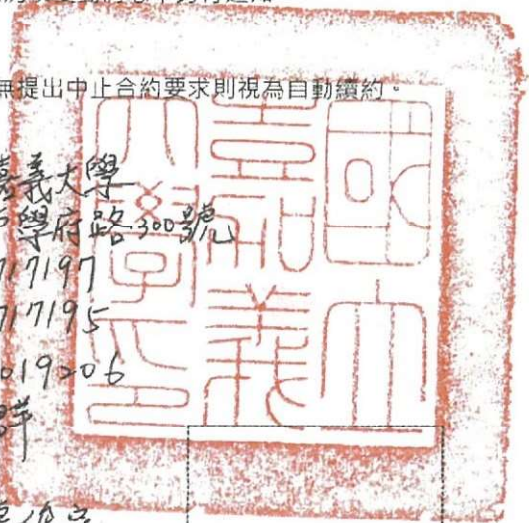 無提出中止合約要求則視為自動續約。
嘉義大學
學府路300號
717197
717195
019206
國立
嘉義
大學印